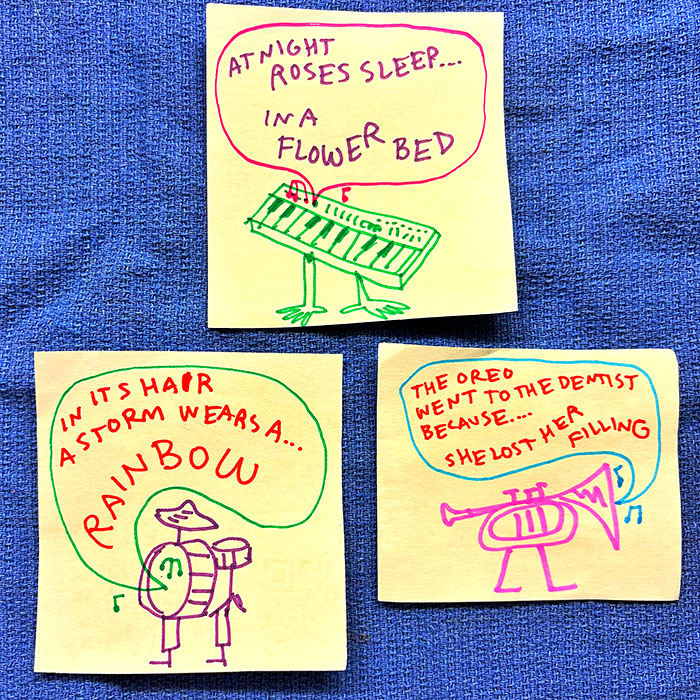 AT NIGHT
ROSES SLEEP....
IN A
FLOWER BED
IN ITS HAIR
A STORM WEARS A...
RAINBOW
THE OREO
WENT TO THE DENTIST
BECAUSE....
SHE LOST HER FILLING